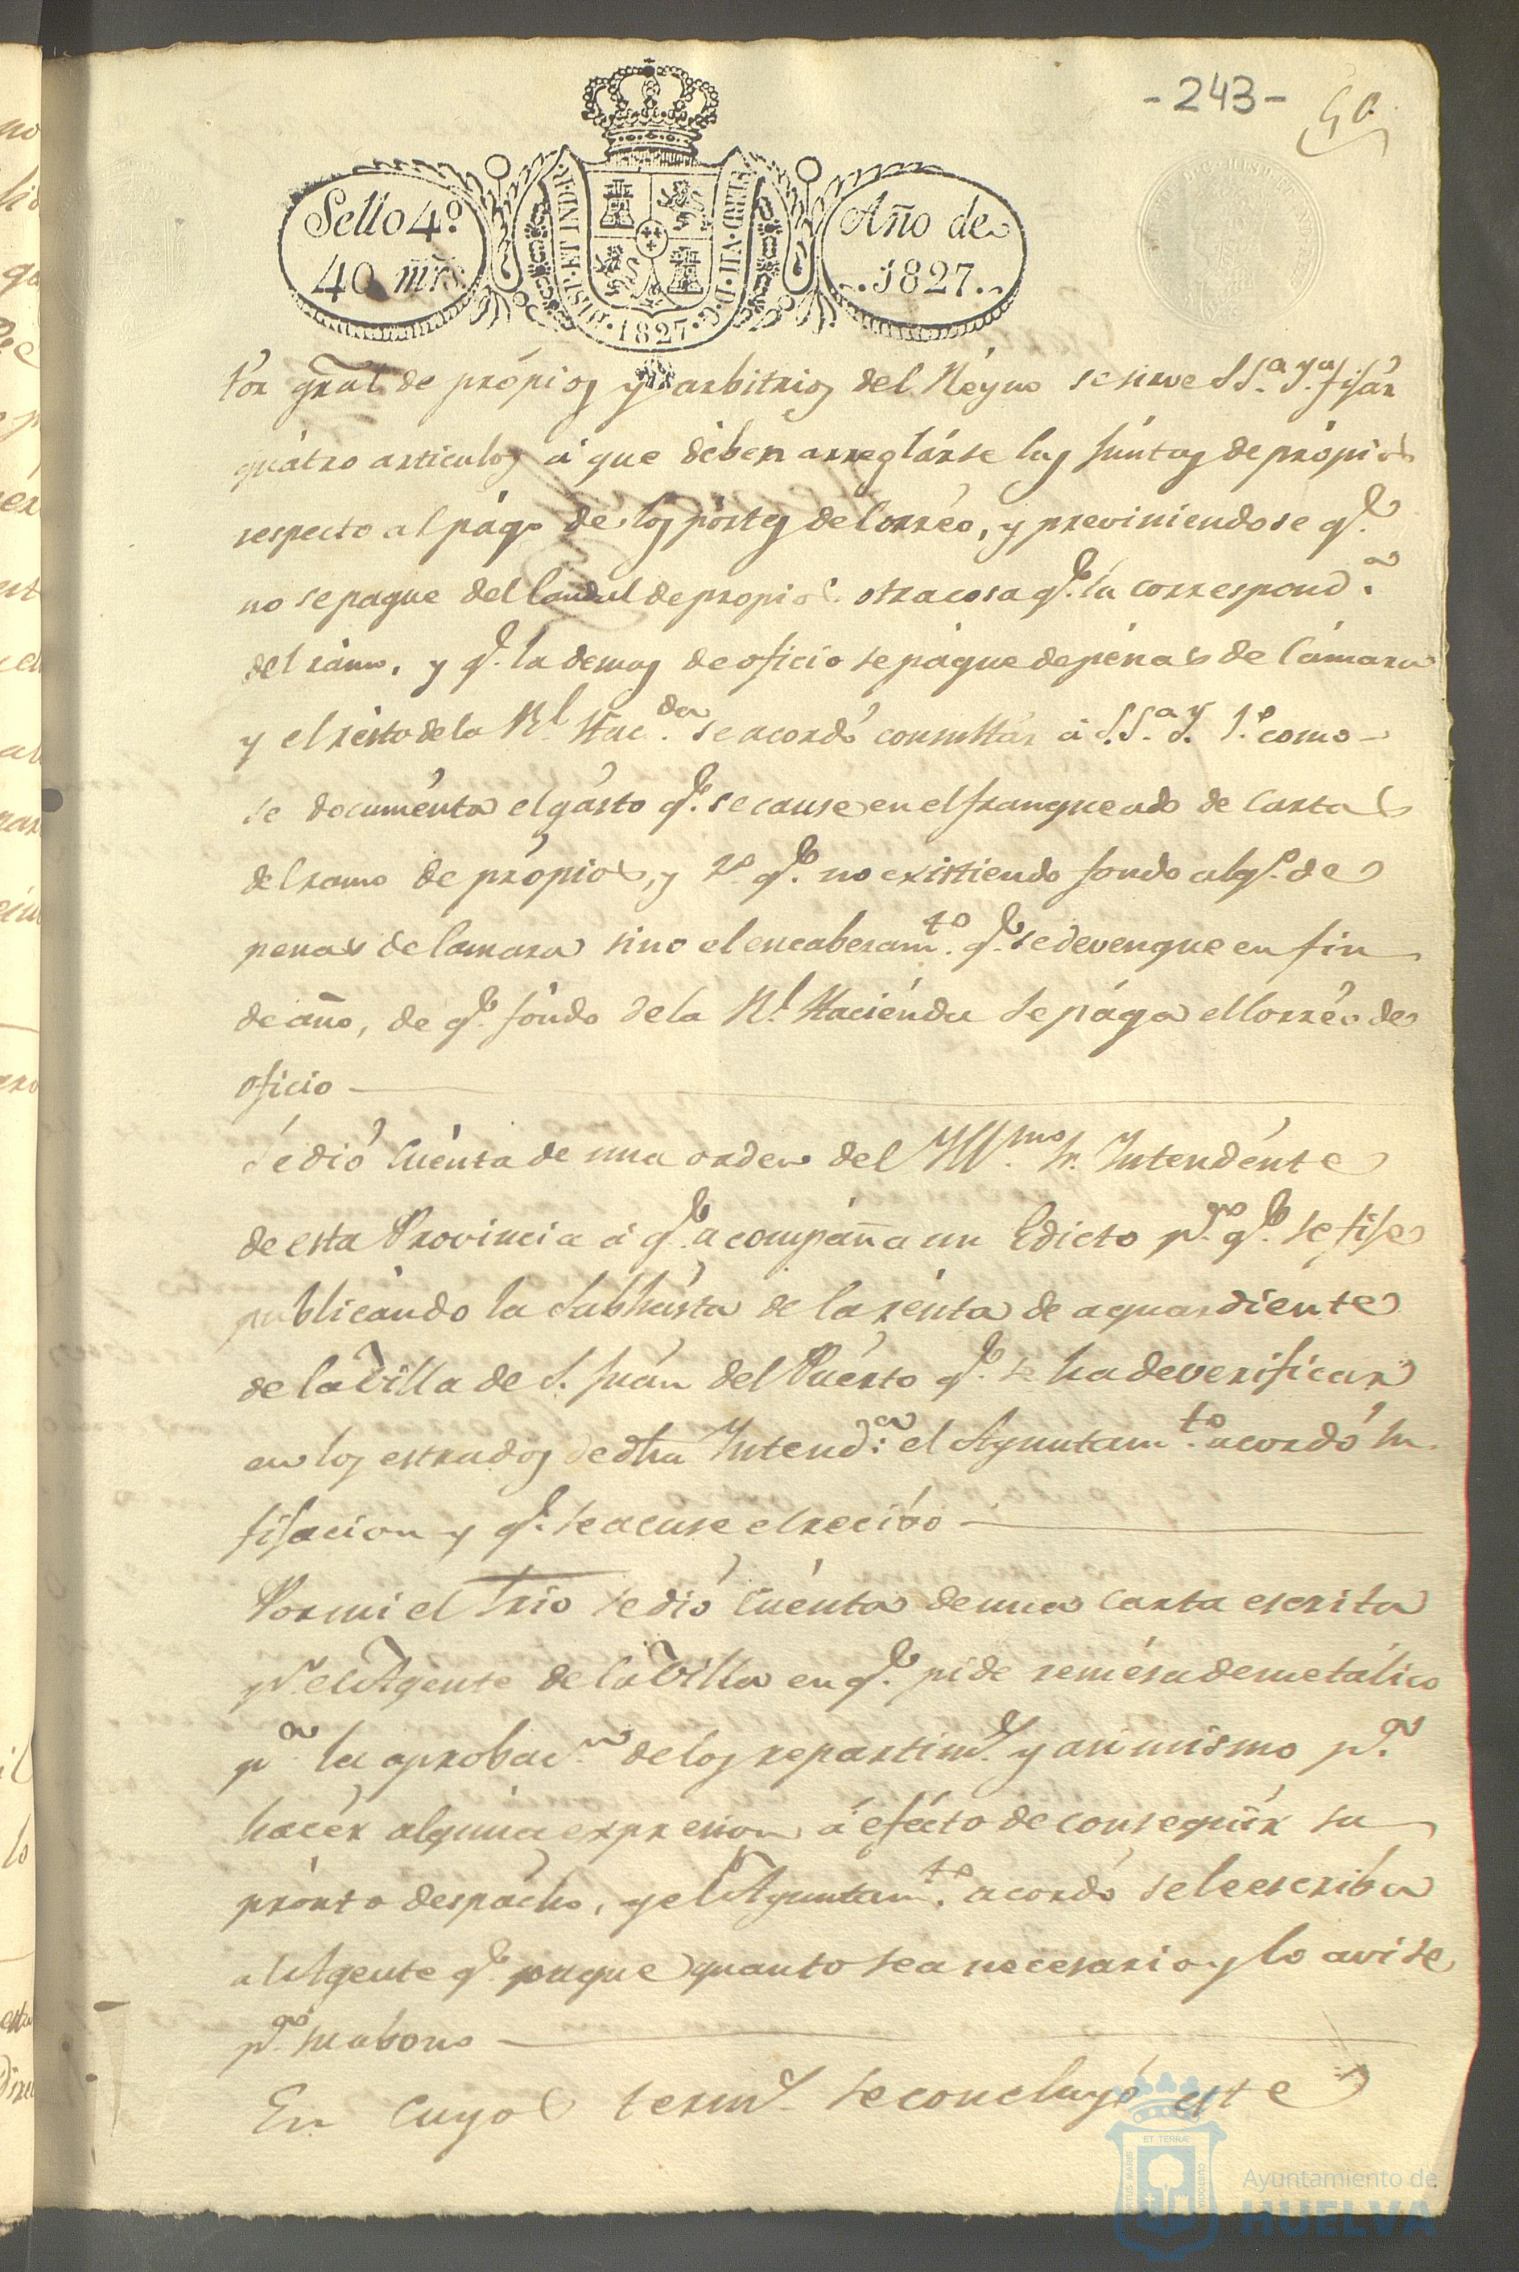 -243-
Sello 4.º
40 mrs.
HISP. ET IND. R.
FERD. VII. D. G.
. 1827 .
Año de
1827.
tor gral de própios y arbitrios del Reyno se sirve S Sª. Yª. fijar
quátro articulos á que dében arreglárse las Júntas de própios
respecto al págo de los pórtes del Corréo, y previniendose q.e
no se pague del Caudal de propios otra cosa q.e la correspond.ª
del rámo, y q.e la demas de oficio se págue de pénas de Cámara
y el résto de la R.l Hac.da se acordó consultar á S. S.ª Y. 1.º como
se documénta el gásto q.e se cause en el franqueado de Cartas
del ramo de própios, y 2.º q.e no existiendo fondo alg.º de
penas de Camara sino el encabesam.to q.e se devengue en fin
de año, de q.e fóndo de la R.l Haciénda se pága el Corréo de
oficio
Se dió Cuénta de una orden del Yll.mo Sr. Yntendénte
de esta Provincia á q.e acompáña un Edicto p.ª q.e se fije
publicándo la Subhásta de la rénta de aguardiénte
de la Villa de S. Juán del Puérto q.e se ha de verificar
en los estrados de dha Yntend.ª el Ayuntam.to acordó su
fijacion y q.e se acuse el recibo
Por mi el Srio se dió Cuénta de una Carta escrita
p.r el Agente de la Villa en q.e pide remésa de metálico
p.ª la aprobac.n de los repartim.s y asi mismo p.ª
hacér algúna expresion á efécto de conseguír su
prónto despácho, y el Ayuntam.to acordó se le escriba
al Agente q.e pague quanto sea necesario y lo avise
p.ª su abono
En Cuyos term.s se concluyó este
ET TERRÆ
PORTUS MARIS
CUSTODIA
Ayuntamiento de
HUELVA